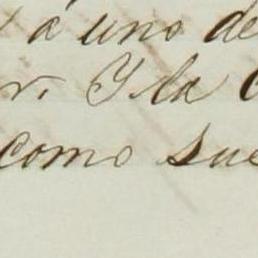 á uno de
r. Y la
como sue